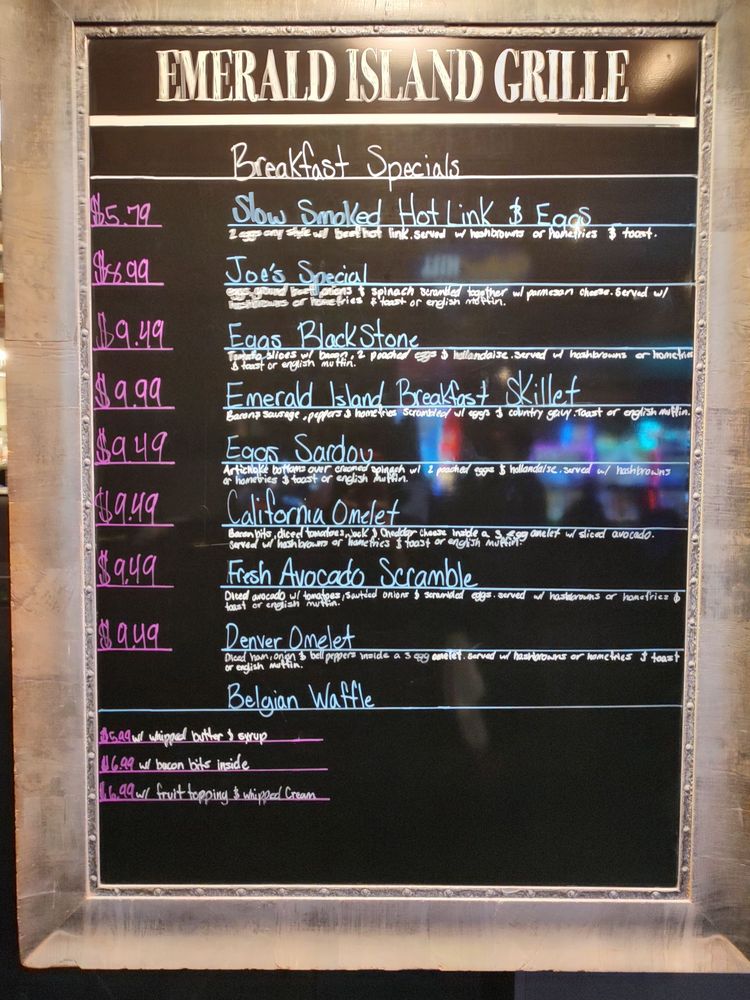 EMERALD ISLAND GRILLE
Breakfast Specials
$5.79 Slow Smoked Hot Link & Eggs
2 eggs any style w/ beef hot link. served w/ hashbrowns or homefries & toast.
$8.99 Joe's Special
& spinach scrambled together w/ parmesan cheese. Served w/
hashbrowns or homefries & toast or english muffin.
$9.49 Eggs BlackStone
Tomato slices w/ bacon, 2 poached eggs & hollandaise. served w/ hashbrowns or homefries
& toast or english muffin.
$9.99 Emerald Island Breakfast Skillet
Bacon, sausage, peppers & homefries scrambled w/ eggs & country gravy. Toast or english muffin.
$9.49 Eggs Sardou
Artichoke bottoms over creamed spinach w/ 2 poached eggs & hollandaise. served w/ hashbrowns
or homefries & toast or english muffin.
$9.49 California Omelet
Bacon bits, diced tomatoes, jack & Cheddar cheese inside a 3 egg omelet w/ sliced avocado.
Served w/ hashbrowns or homefries & toast or english muffin.
$9.49 Fresh Avocado Scramble
Diced avocado w/ tomatoes, sautéed onions & scrambled eggs. served w/ hashbrowns or homefries &
toast or english muffin.
$9.49 Denver Omelet
Diced ham, onion & bell peppers inside a 3 egg omelet. Served w/ hashbrowns or homefries & toast
or english muffin.
Belgian Waffle
$5.99 w/ whipped butter & syrup
$6.99 w/ bacon bits inside
$6.99 w/ fruit topping & whipped Cream